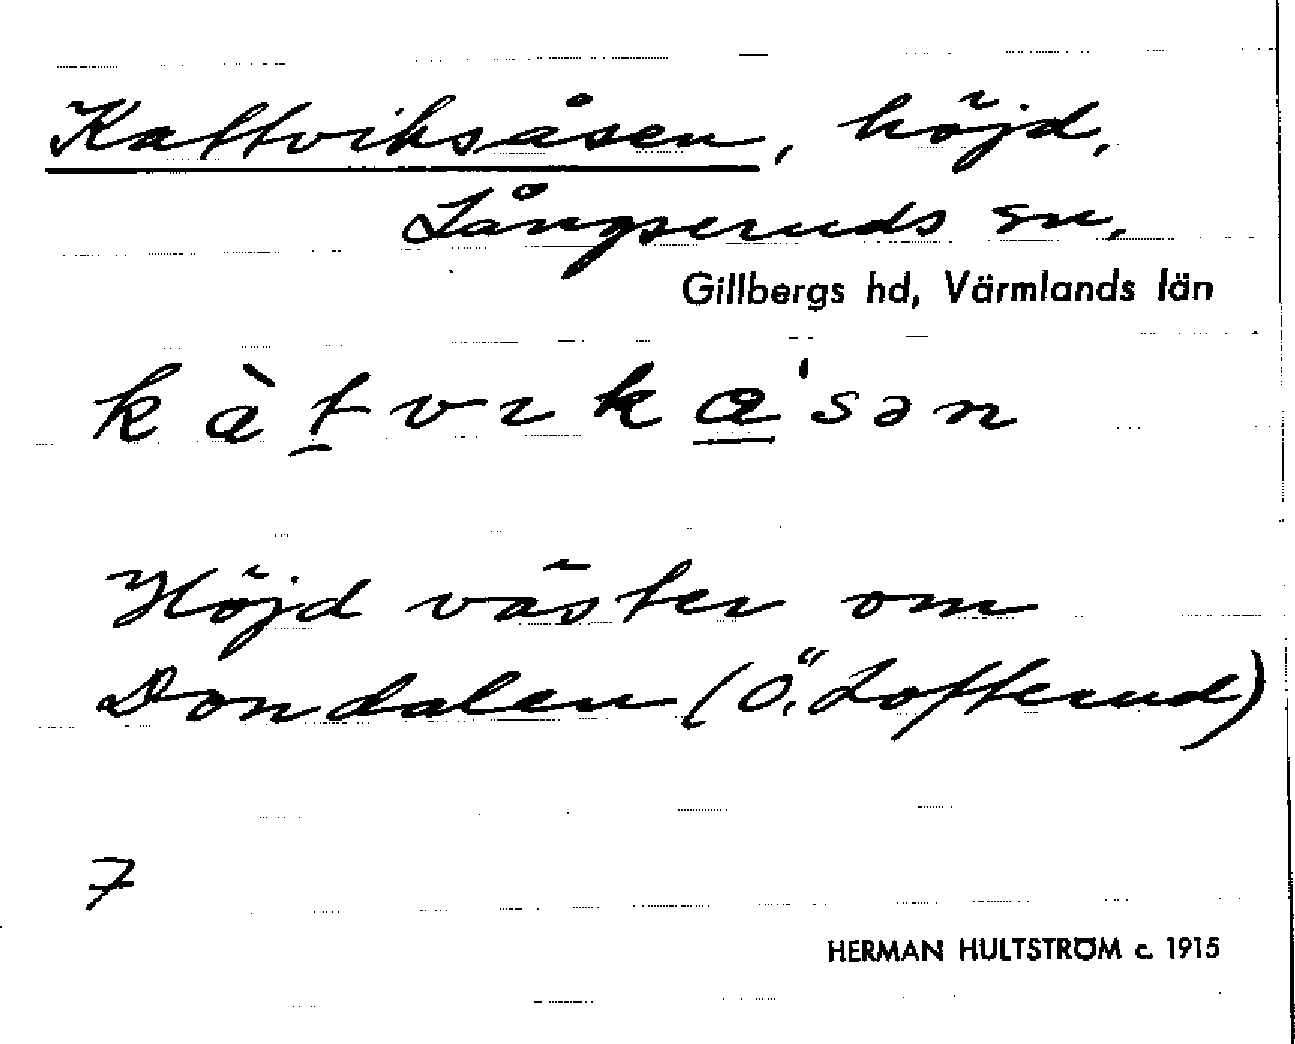 Kattviksåsen, höjd,
Långseruds sn,
Gillbergs hd, Värmlands län
kàt̲vıkɑ̲'sən
Höjd väster om
Dondalen (Ö. Lofterud)
7
HERMAN HULTSTRÖM c. 1915